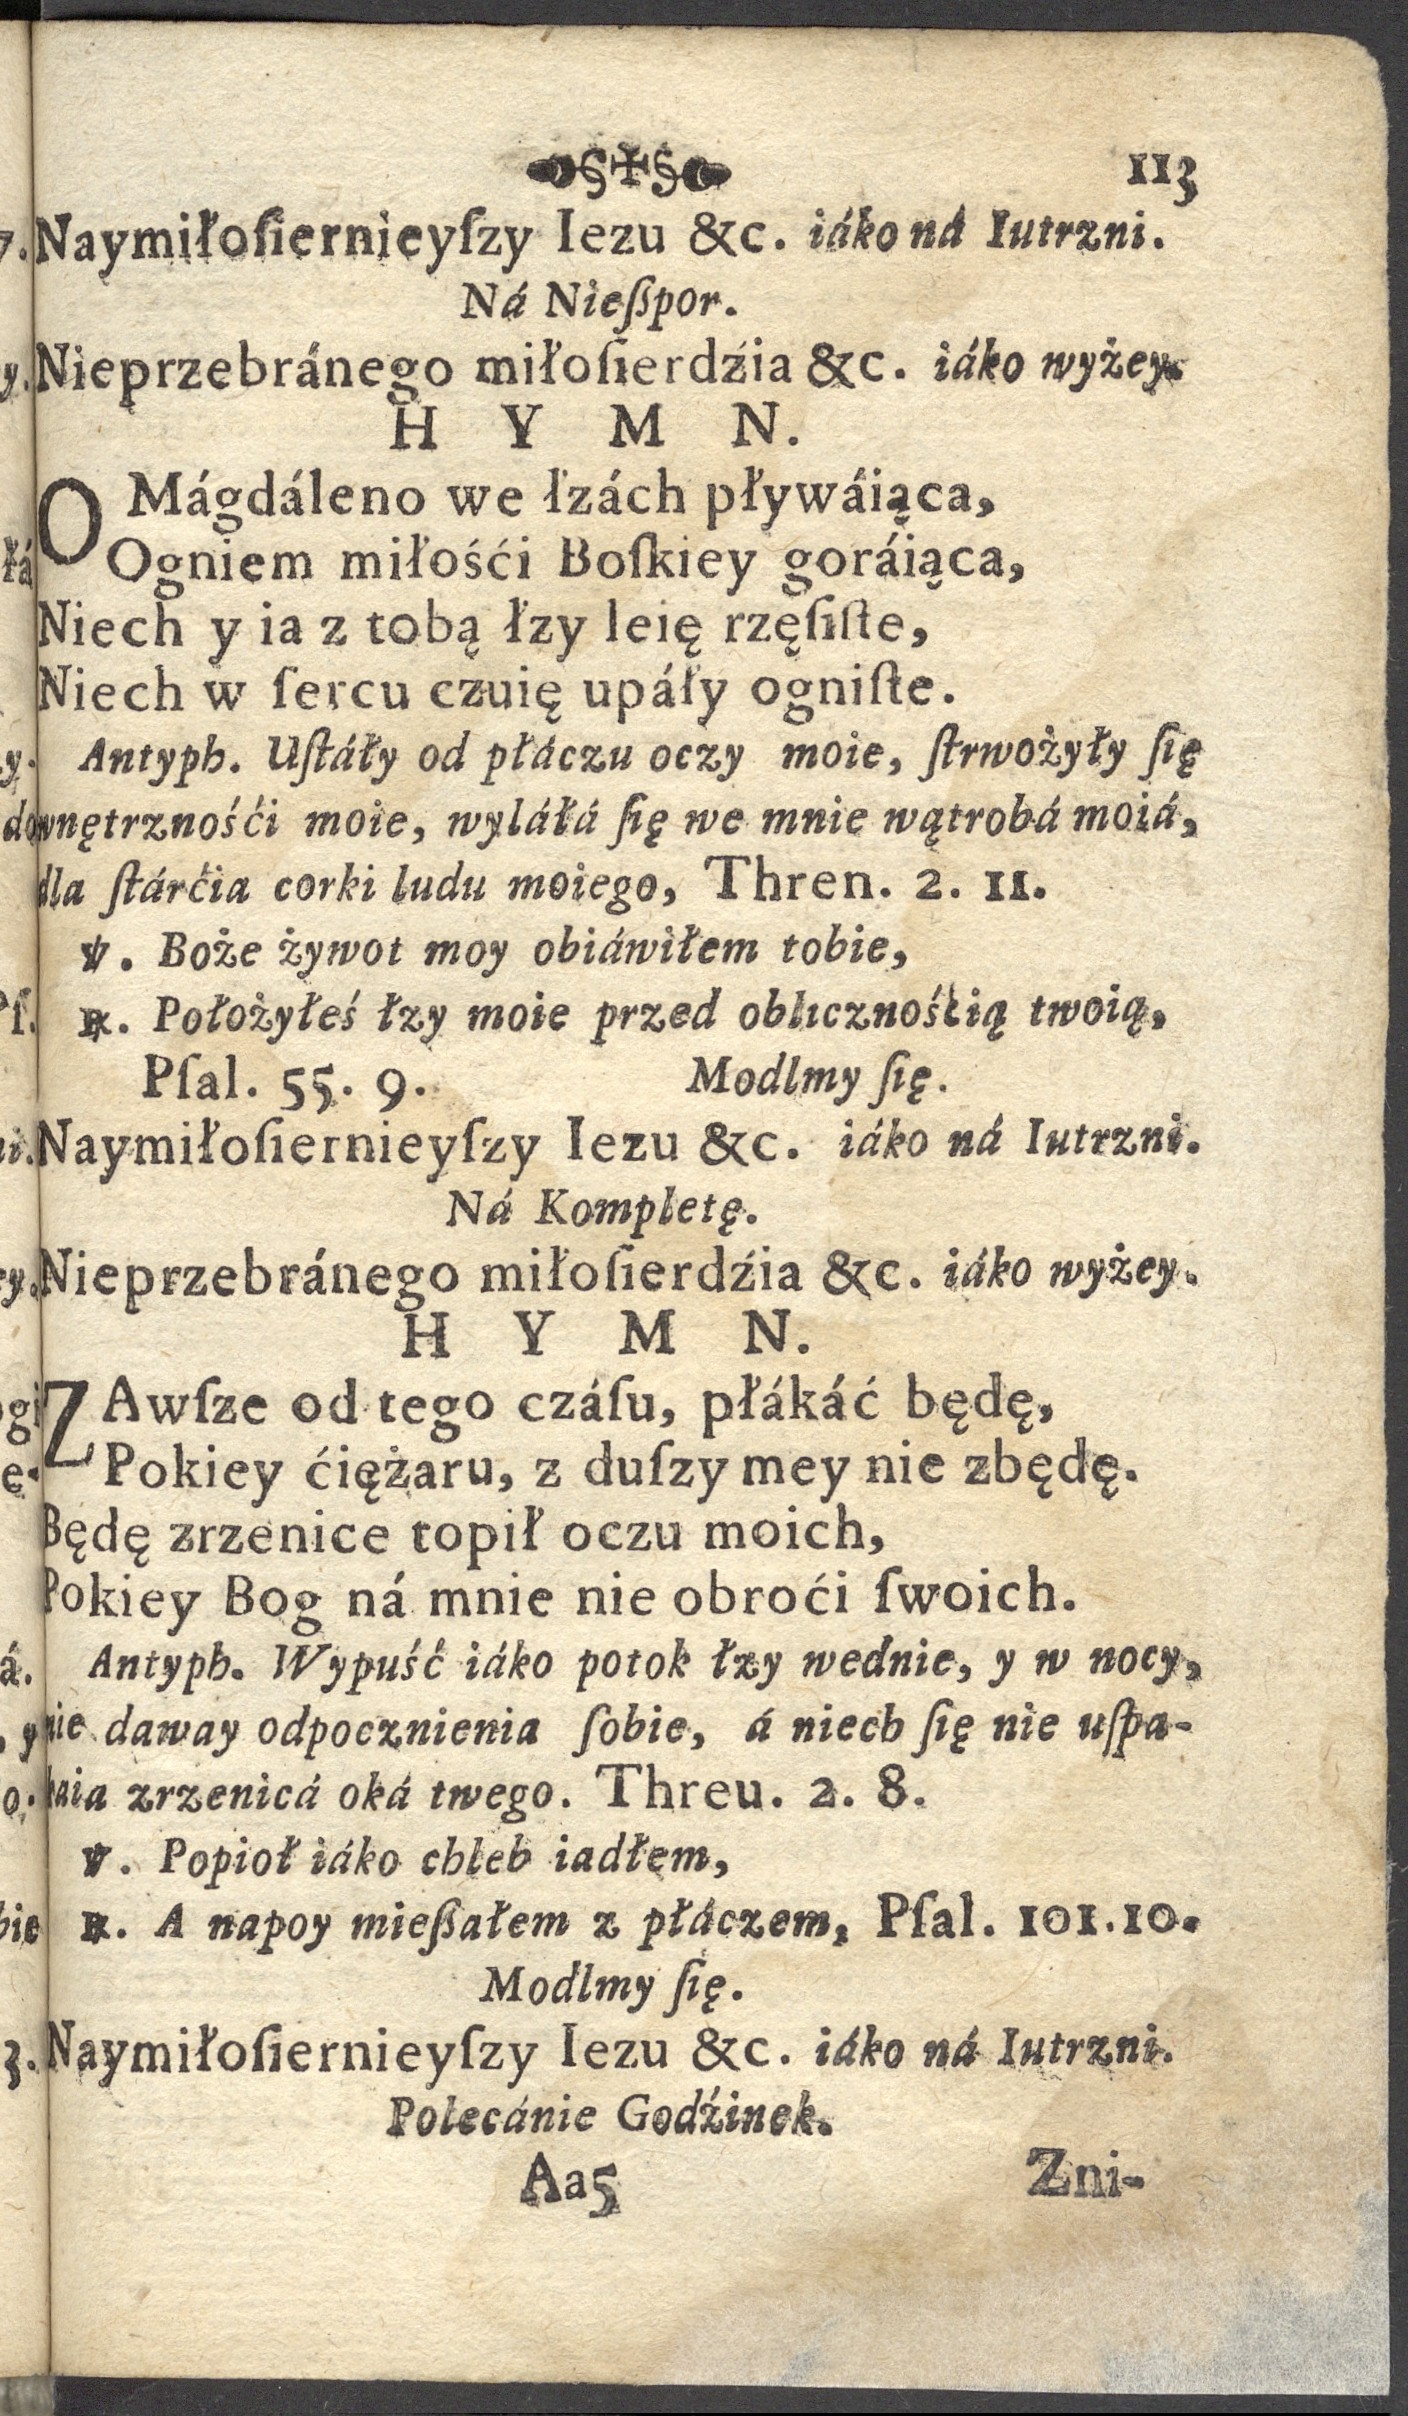 113
Naymiłoſiernieyſzy Iezu &c. iáko ná Iutrzni.
Ná Nießpor.
Nieprzebránego miłoſierdźia &c. iáko wyżey.
H Y M N.
O Mágdáleno we łzách pływáiąca,
Ogniem miłośći Boſkiey goráiąca,
Niech y ia z tobą łzy leię rzęſiſte,
Niech w ſercu czuię upáły ogniſte.
Antyph. Uſtáły od płáczu oczy moie, ſtrwożyły ſię
wnętrznośći moie, wyláłá ſię we mnie wątrobá moiá,
dla ſtárćia corki ludu moiego, Thren. 2. 11.
℣. Boże żywot moy obiáwiłem tobie,
℟. Położyłeś łzy moie przed oblicznośćią twoią,
Pſal. 55. 9. Modlmy ſię.
Naymiłoſiernieyſzy Iezu &c. iáko ná Iutrzni.
Ná Kompletę.
Nieprzebránego miłoſierdźia &c. iáko wyżey.
H Y M N.
ZAwſze od tego czáſu, płákáć będę,
Pokiey ćiężaru, z duſzy mey nie zbędę.
Będę zrzenice topił oczu moich,
Pokiey Bog ná mnie nie obroći ſwoich.
Antyph. Wypuść iáko potok łzy wednie, y w nocy,
nie daway odpocznienia ſobie, á niech ſię nie uſpa-
kaia zrzenicá oká twego. Threu. 2. 8.
℣. Popioł iáko chleb iadłem,
℟. A napoy mießałem z płáczem, Pſal. 101.10.
Modlmy ſię.
Naymiłoſiernieyſzy Iezu &c. iáko ná Iutrzni.
Polecánie Godźinek.
Aa5 Zni-